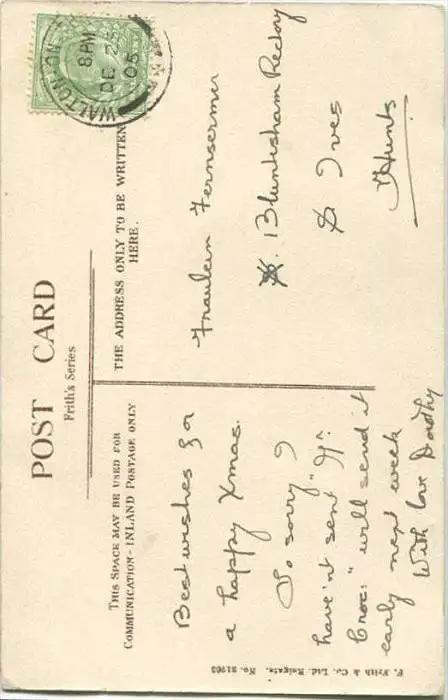 POST CARD
Frith's Series
THIS SPACE MAY BE USED FOR
COMMUNICATION - INLAND POSTAGE ONLY
THE ADDRESS ONLY TO BE WRITTEN
HERE.
WALTON-ON-
8 PM
DE 2
05
Best wishes for
a happy Xmas.
So sorry I
have'nt sent
will send it
early next week
With love Dorothy
Fraulein Fernsermer
Bluntisham Rectory
St Ives
Hunts
F. Frith & Co. Ltd. Reigate. No. 31963